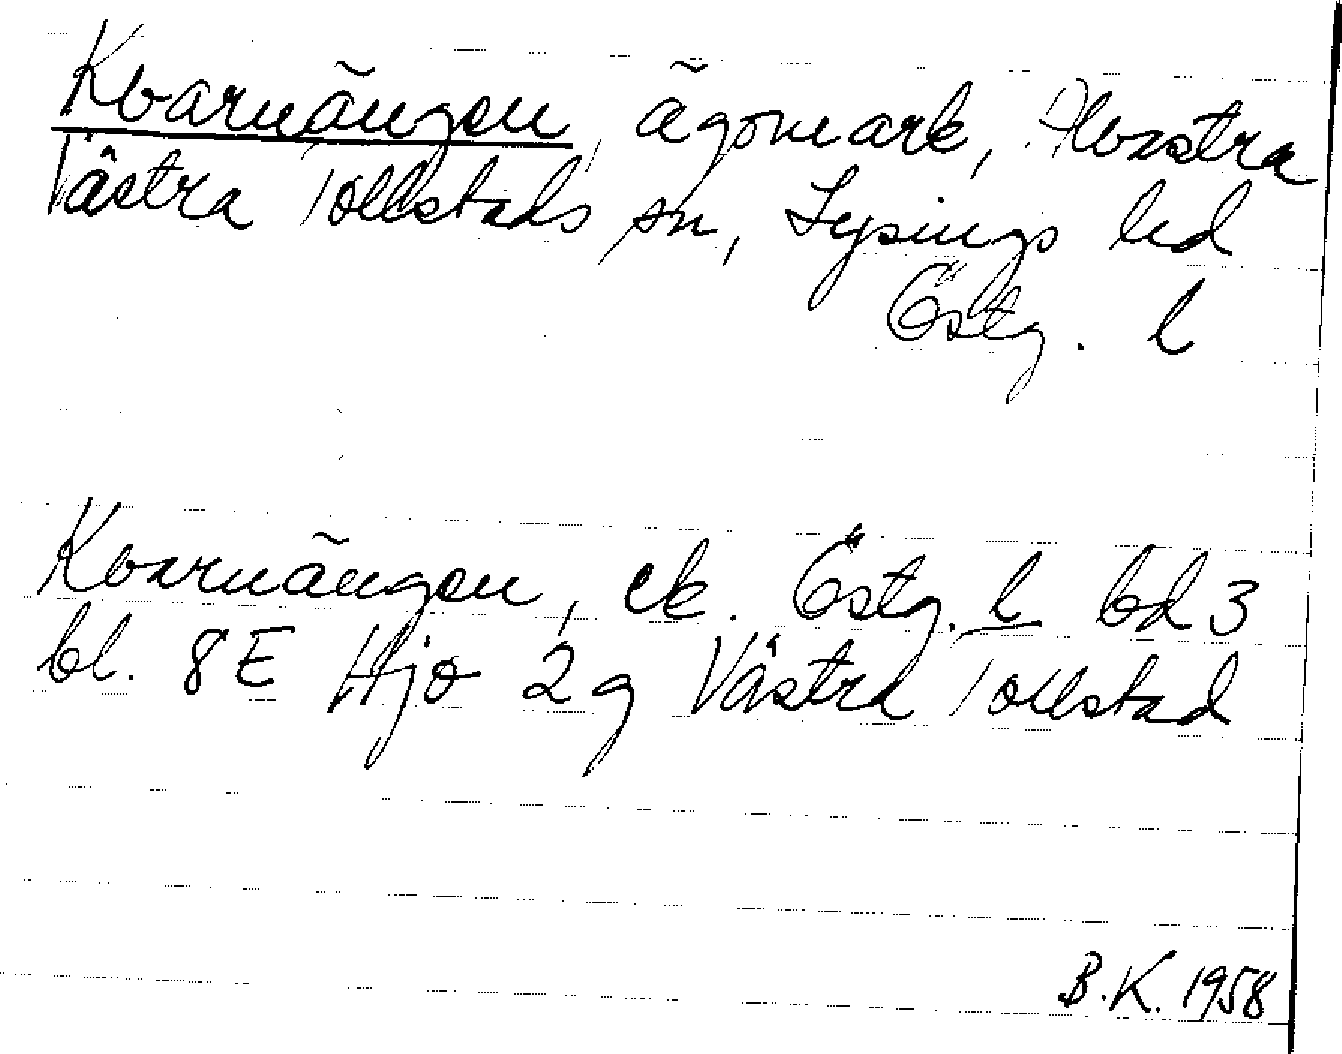 Kvarnängen, ägomark, Alvastra
Västra Tollstads sn, Lysings hd
Östg. l
Kvarnängen, ek. Östg. l bd 3
bl. 8E Hjo 2g Västra Tollstad
B.K. 1958